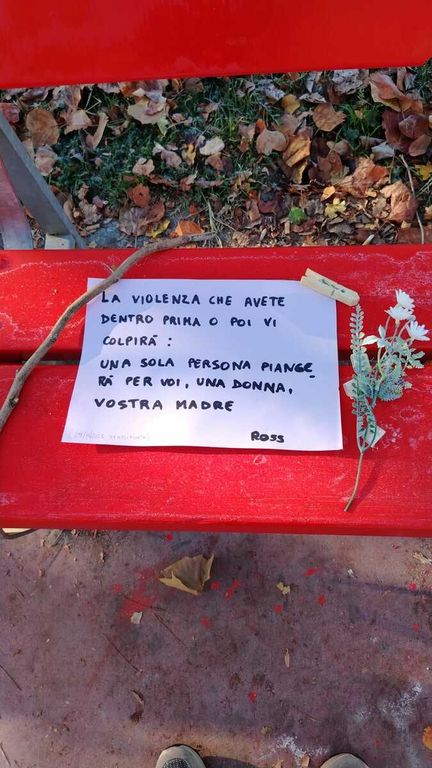 LA VIOLENZA CHE AVETE
DENTRO PRIMA O POI VI
COLPIRÀ:
UNA SOLA PERSONA PIANGE-
RÀ PER VOI, UNA DONNA,
VOSTRA MADRE
ROSS